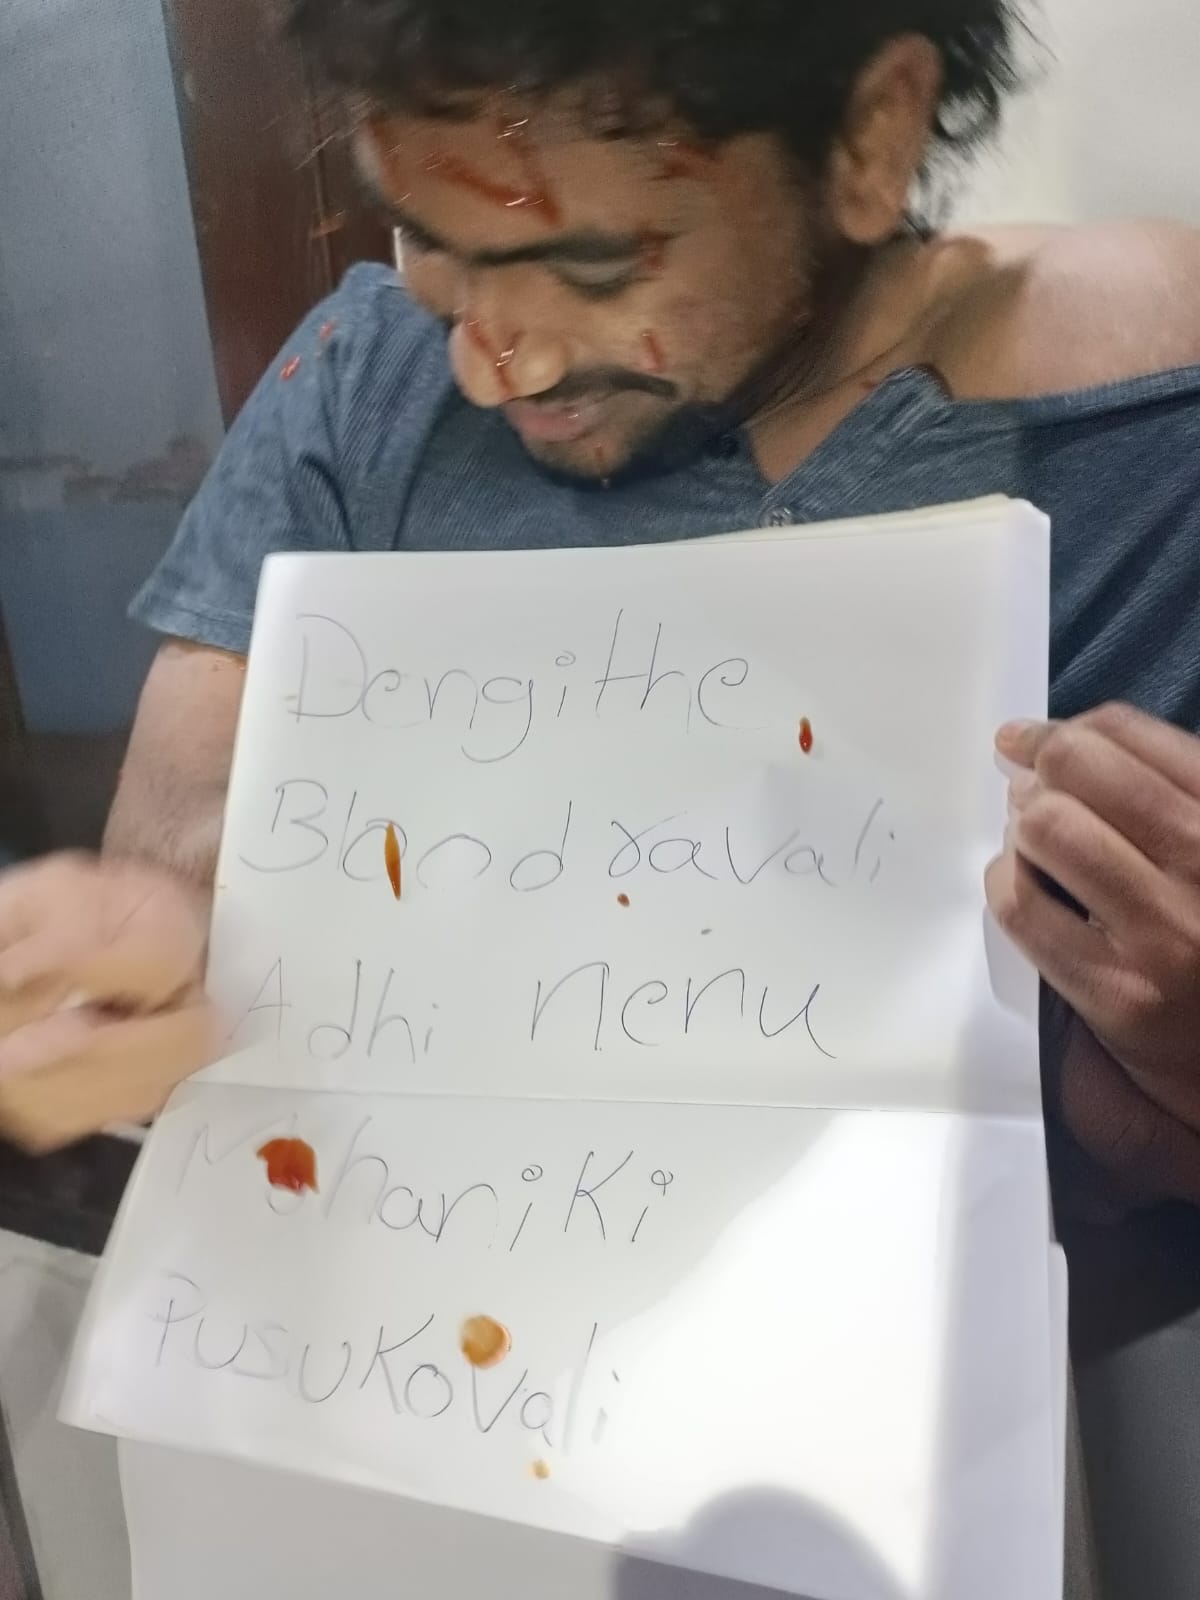 Dengithe
Blood ravali
Adhi nenu
Mohaniki
Pusukovali